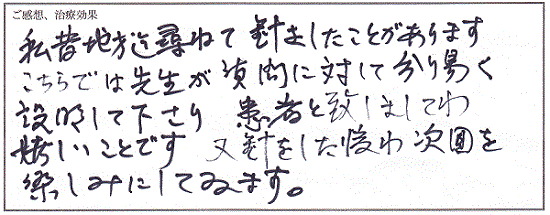 ご感想、治療効果
私昔地方迄尋ねて針をしたことがあります
こちらでは先生が質問に対して分り易く
説明して下さり 患者と致しましてわ
嬉しいことです 又針をした後わ次回を
楽しみにしてゐます。